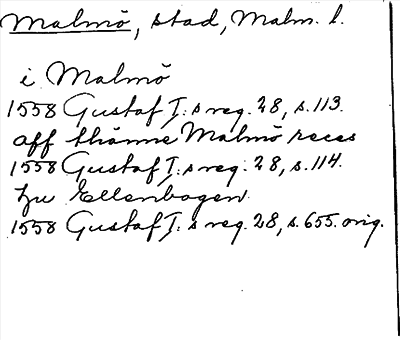 Malmö, stad, Malm. l.
i Malmö
1558 Gustaf I:s reg. 28, s. 113.
aff thänne Malmö reces
1558 Gustaf I:s reg. 28, s. 114.
zu Ellenbogen
1558 Gustaf I:s reg. 28, s. 655. orig.